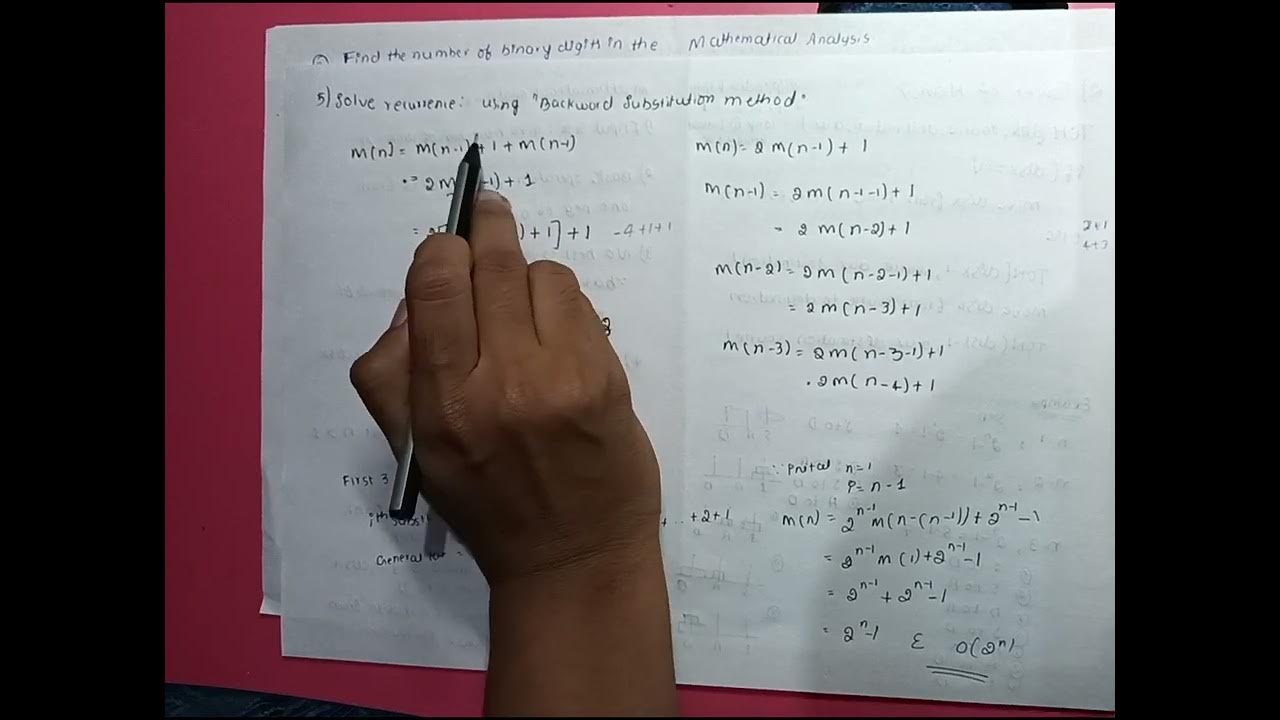 Find the number of binary digits in the Mathematical Analysis
5) Solve recurrence: using "Backward Substitution method.
m(n) = m(n-1)+1 + m(n-1)
= 2m -1)+1
= 2 )+1]+1 -4+1+1
3
First 3
ith substi + .. +2+1
General
m(n) = 2m(n-1)+1
m(n-1) = 2m(n-1-1)+1
= 2m(n-2)+1
2+1
4+3
m(n-2) = 2m(n-2-1)+1
= 2m(n-3)+1
m(n-3) = 2m(n-3-1)+1
. 2m(n-4)+1
n=1
= n-1
m(n) = 2^{n-1} m(n-(n-1)) + 2^{n-1} -1
= 2^{n-1} m(1) + 2^{n-1} -1
= 2^{n-1} + 2^{n-1} -1
= 2^n -1 ε O(2^n)